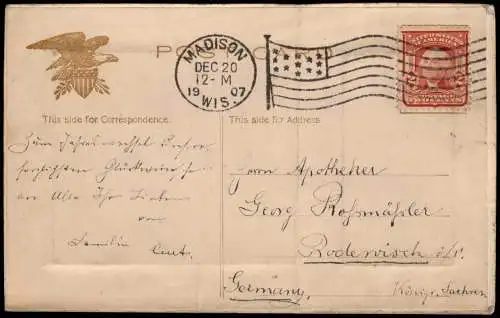 POST CARD
MADISON
DEC 20
12-M
1907
WIS.
This side for Correspondence.
This side for Address.
Zum Jahreswechsel
herzlichsten Glückwünsche
an Alle Ihr Lieben
von
Familie
Herrn Apotheker
Georg Roßmäßler
Rodewisch i/V.
Germany.
Königr. Sachsen